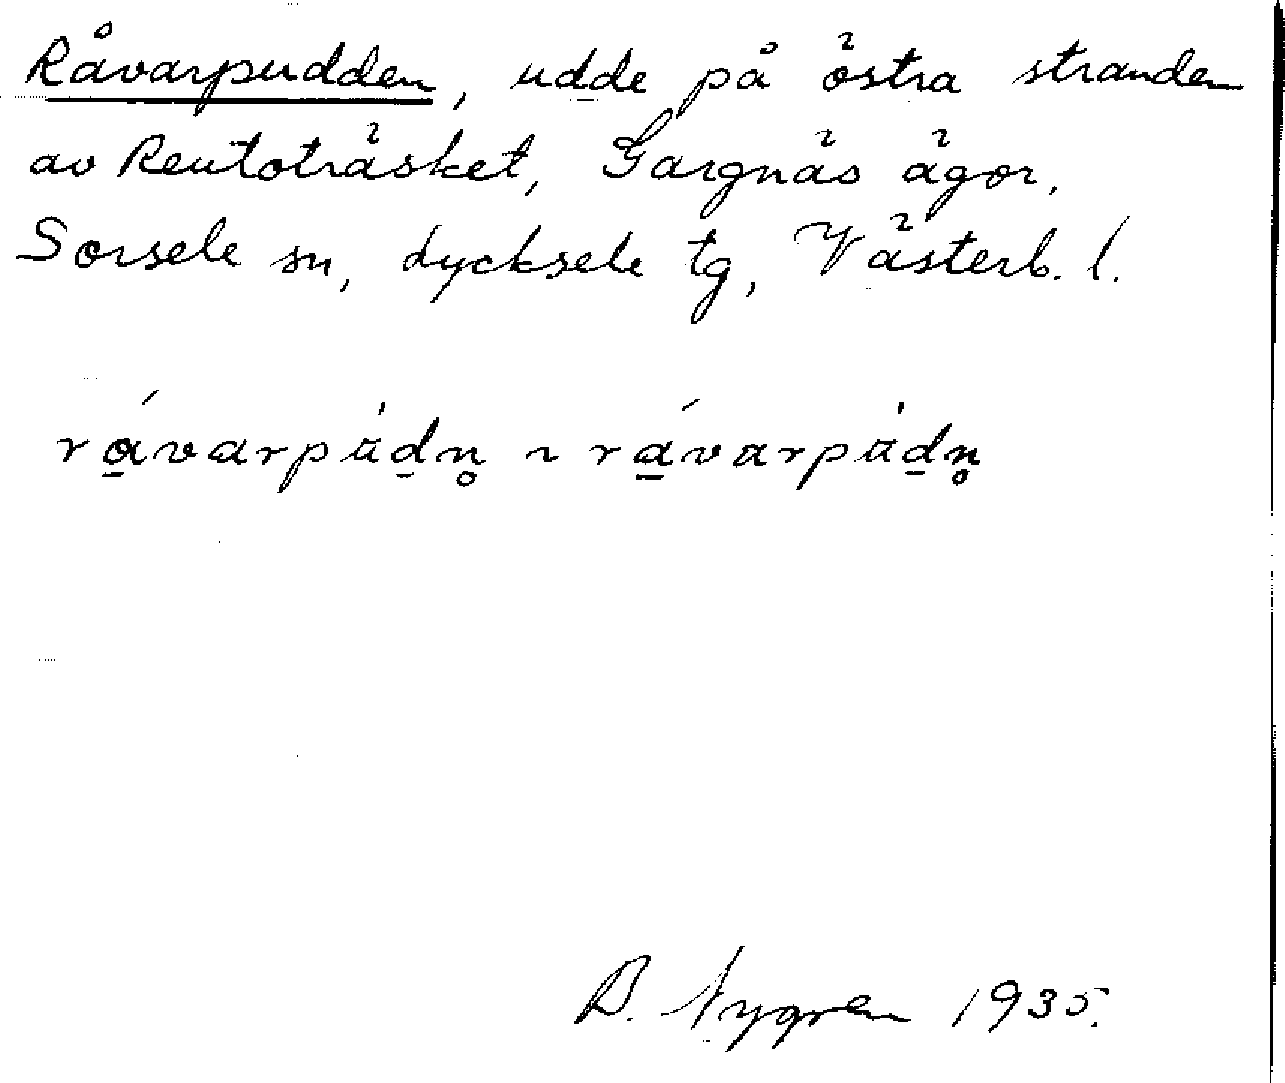 Råvarpudden, udde på östra stranden
av Reutoträsket, Gargnäs ägor,
Sorsele sn, Lycksele tg, Västerb. l.
rá̱varpu̍ḏn̥ ~ rá̱varpu̍ḏn̥
B. Nygren 1935.